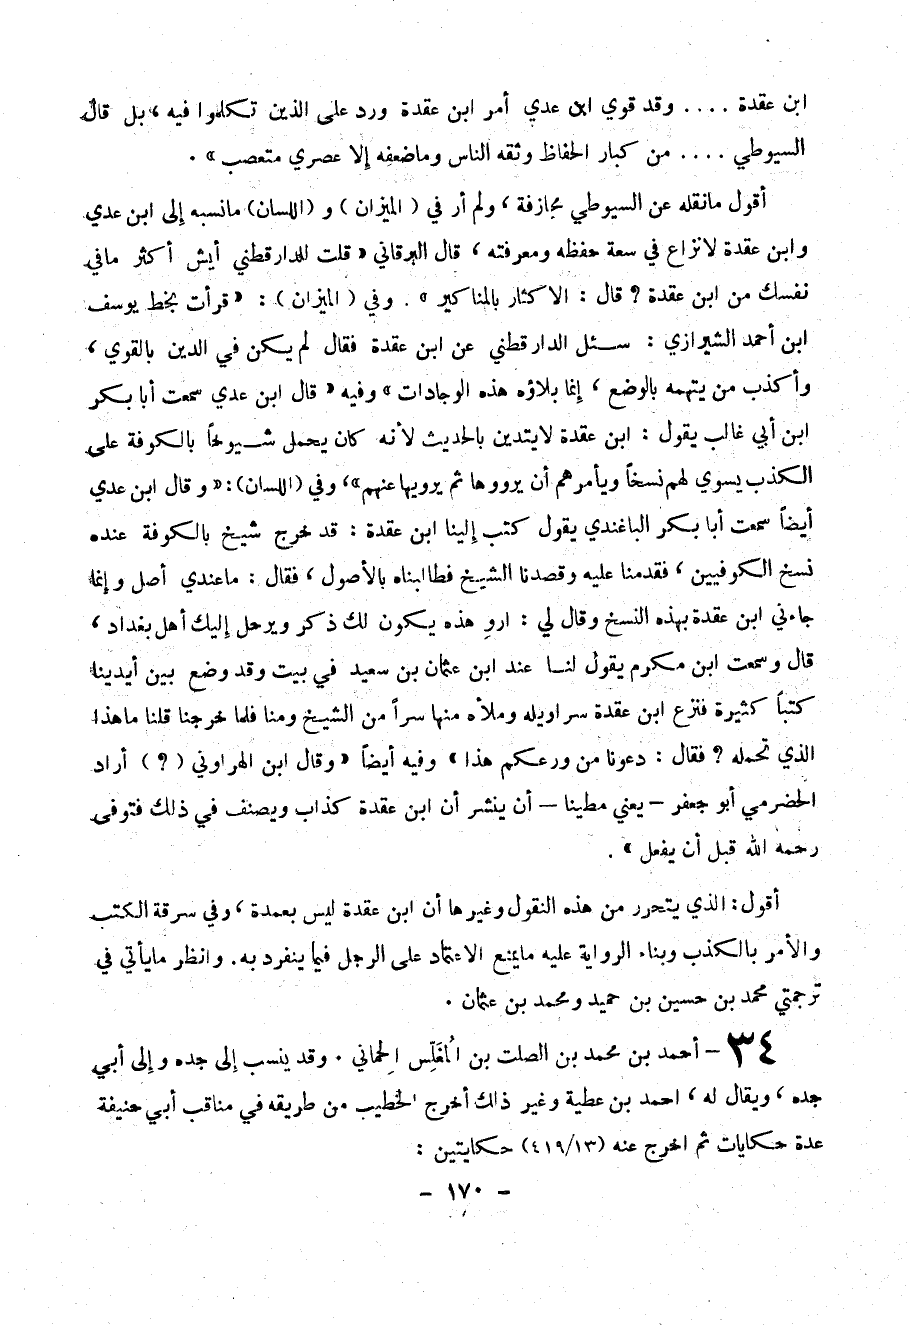 ابن عقدة .... وقد قوي ابن عدي أمر ابن عقدة ورد على الذين تكلموا فيه ، بل قال
السيوطي .... من كبار الحفاظ وثقه الناس وماضعفه إلا عصري متعصب » .
أقول مانقله عن السيوطي مجازفة ، ولم أر في ( الميزان ) و ( اللسان) مانسبه إلى ابن عدي
وابن عقدة لانزاع في سعة حفظه ومعرفته ، قال البرقاني « قلت للدارقطني أيش أكثر مافي
نفسك من ابن عقدة ؟ قال : الاكثار بالمناكير » . وفي ( الميزان ) : « قرأت بخط يوسف
ابن أحمد الشيرازي : سئل الدارقطني عن ابن عقدة فقال لم يكن في الدين بالقوي ،
وأكذب من يتهمه بالوضع ، إنما بلاؤه هذه الوجادات » وفيه « قال ابن عدي سمعت أبا بكر
ابن أبي غالب يقول : ابن عقدة لايتدين بالحديث لأنه كان يحمل شيوخاً بالكوفة على
الكذب يسوي لهم نسخاً ويأمرهم أن يرووها ثم يرويها عنهم »، وفي (اللسان): « وقال ابن عدي
أيضاً سمعت أبا بكر الباغندي يقول كتب إلينا ابن عقدة : قد خرج شيخ بالكوفة عنده
نسخ الكوفيين ، فقدمنا عليه وقصدنا الشيخ فطالبناه بالأصول ، فقال : ماعندي أصل وإنما
جاءني ابن عقدة بهذه النسخ وقال لي : اروِ هذه يكون لك ذكر ويرحل إليك أهل بغداد ،
قال وسمعت ابن مكرم يقول لنا عند ابن عثمان بن سعيد في بيت وقد وضع بين أيدينا
كتباً كثيرة فنزع ابن عقدة سراويله وملأه منها سراً من الشيخ ومنا فلما خرجنا قلنا ماهذا
الذي تحمله ؟ فقال : دعونا من ورعكم هذا » وفيه أيضاً « وقال ابن الهرواني ( ؟ ) أراد
الحضرمي أبو جعفر – يعني مطينا – أن ينشر أن ابن عقدة كذاب ويصنف في ذلك فتوفى
رحمه الله قبل أن يفعل » .
أقول: الذي يتحرر من هذه النقول وغيرها أن ابن عقدة ليس بعمدة ، وفي سرقة الكتب
والأمر بالكذب وبناء الرواية عليه مايمنع الاعتماد على الرجل فيما ينفرد به. وانظر مايأتي في
ترجمتي محمد بن حسين بن حميد ومحمد بن عثمان .
٣٤ – أحمد بن محمد بن الصلت بن المُغَلِّس الحِماني . وقد ينسب إلى جده وإلى أبي
جده ، ويقال له ، احمد بن عطية وغير ذلك أخرج الخطيب من طريقه في مناقب أبي حنيفة
عدة حكايات ثم اخرج عنه (٤١٩/١٣) حكايتين :
– ١٧٠ –